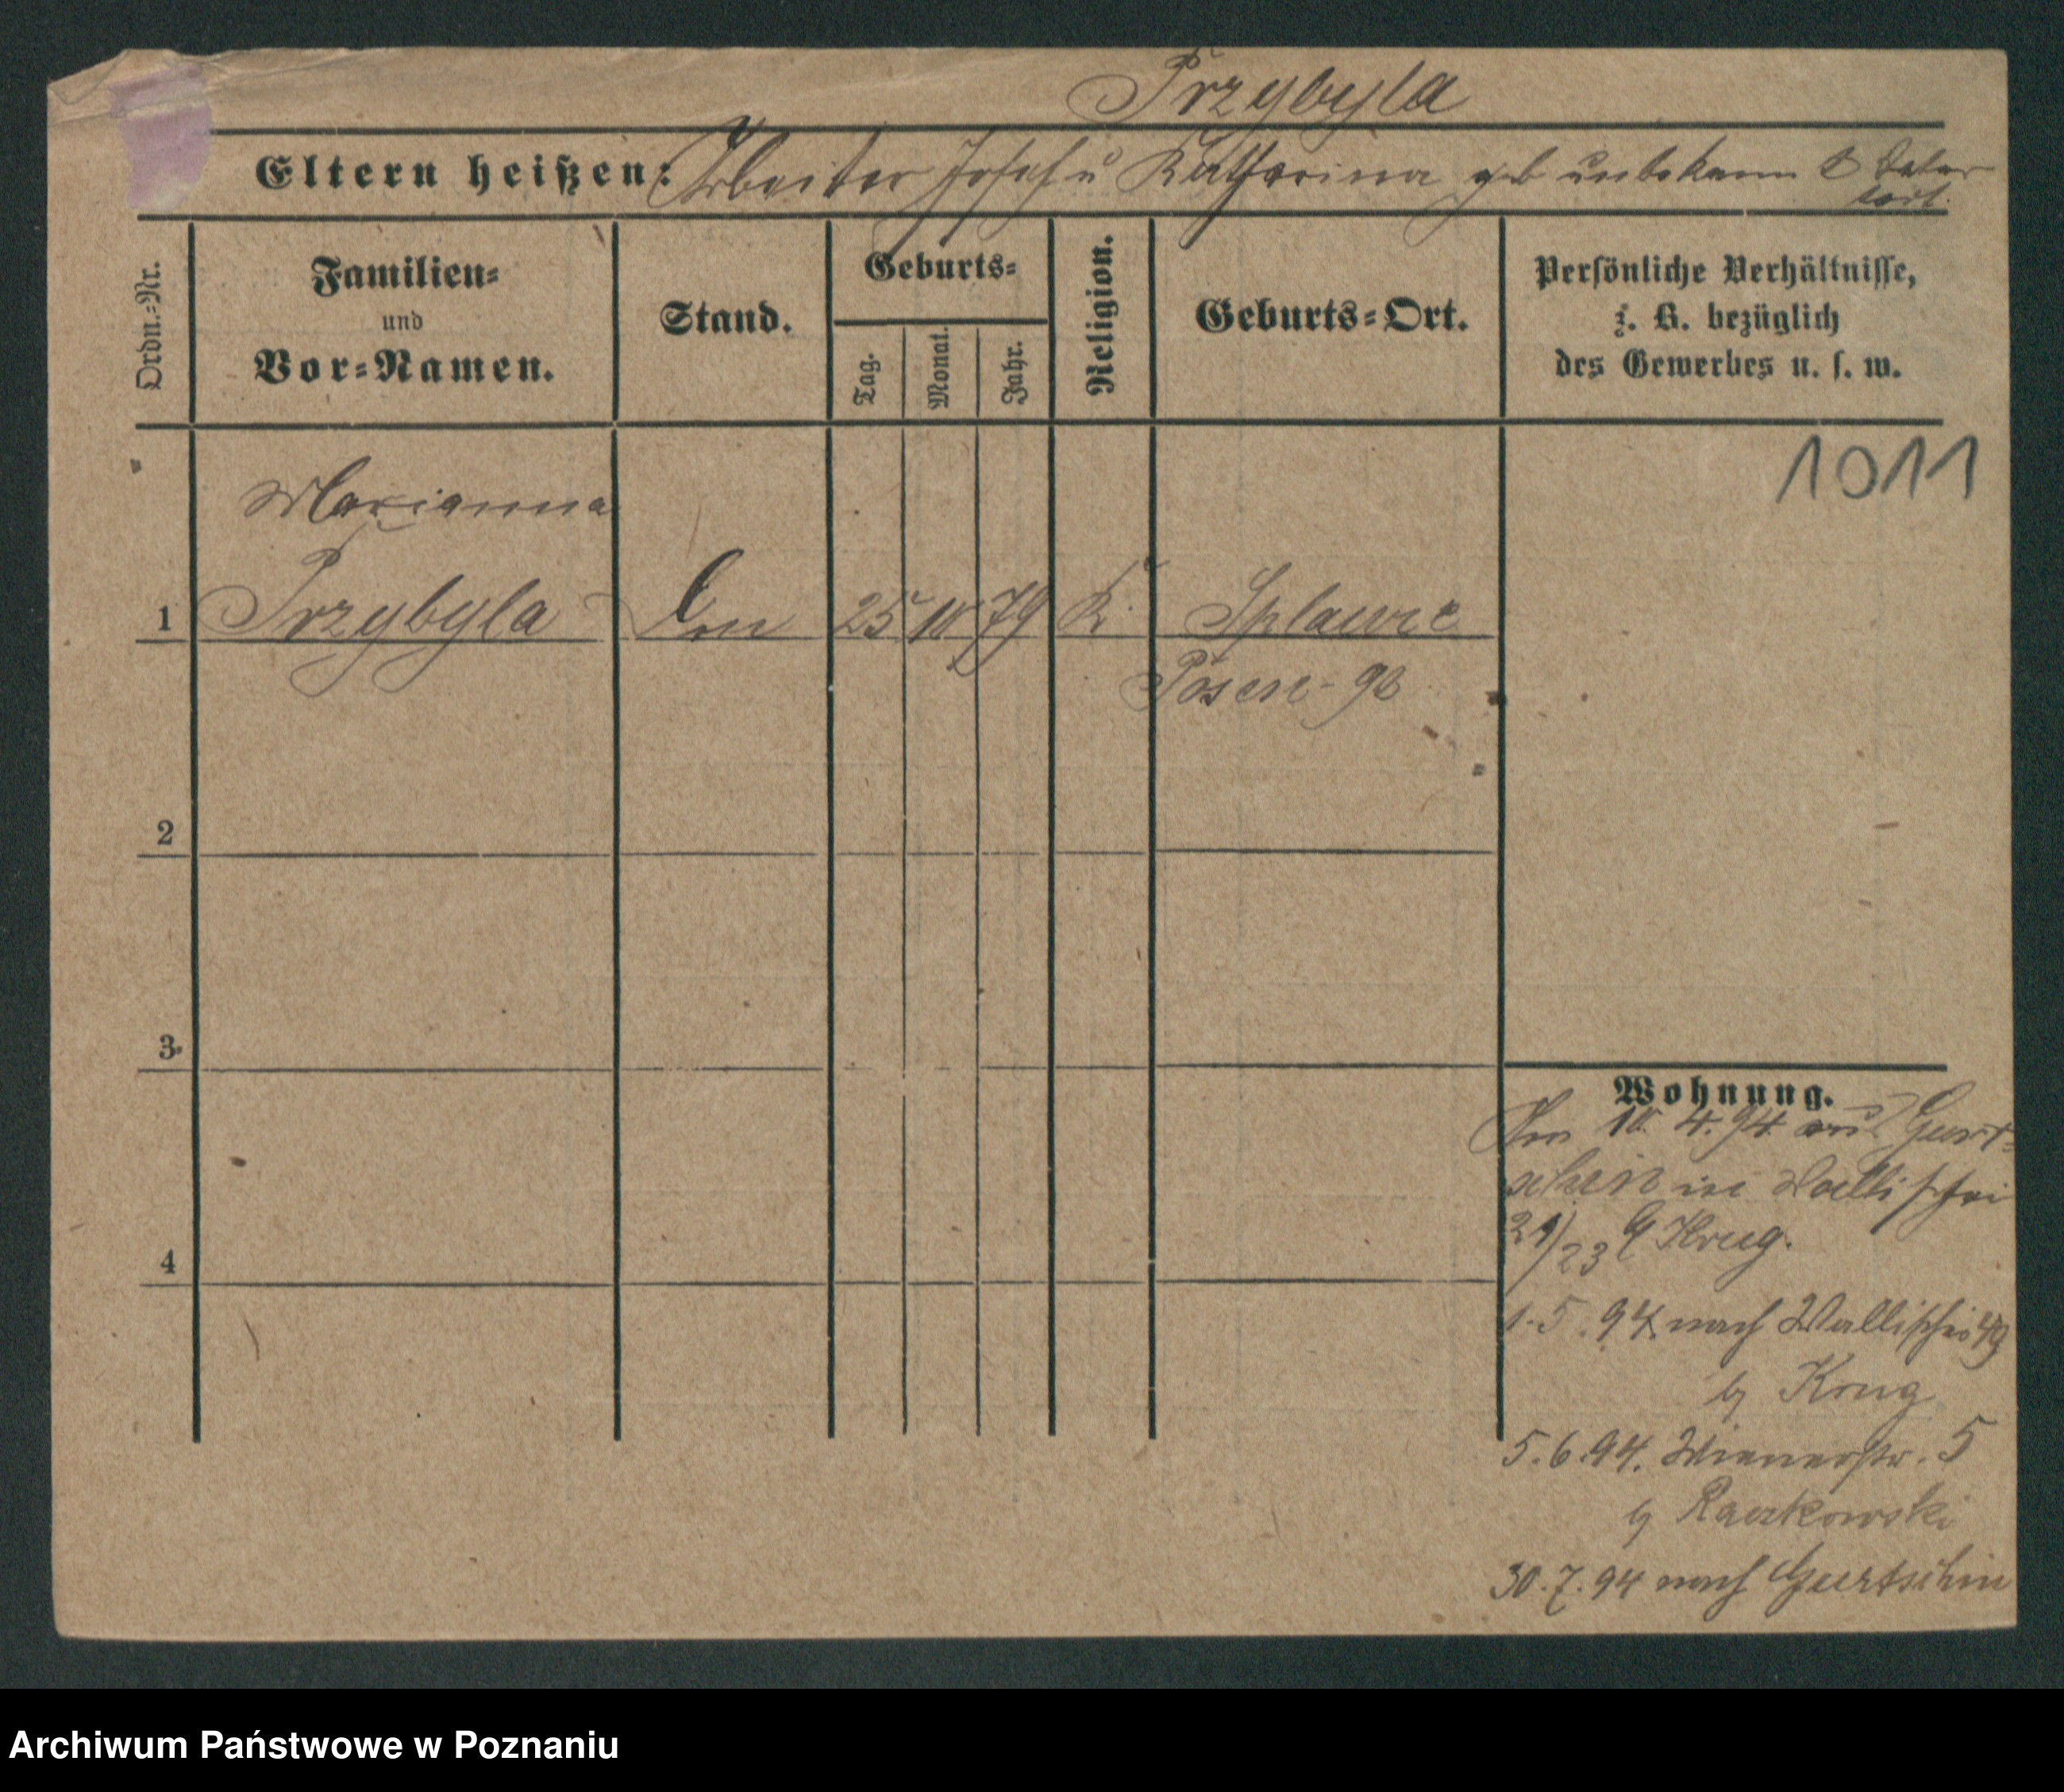 Przybyla
Eltern heißen: Arbeiter Josef u Katharina geb unbekann
Ordn.-Nr.
Familien-
und
Vor-Namen.
Stand.
Geburts-
Tag.
Monat.
Jahr.
Religion.
Geburts-Ort.
Persönliche Verhältnisse,
z. B. bezüglich
des Gewerbes u. s. w.
1011
Marianna
1 Przybyla 25 10 79 K. Splawie
Posen
2
3
4
Wohnung.
10. 4. 94 aus Gurt-
schin in Wallischei
21/23 Krug.
1.5.94 nach Wallischei 49
b Krug
5.6.94. Wienerstr. 5
b Raczkowski
30.7.94 nach Gurtschin
Archiwum Państwowe w Poznaniu